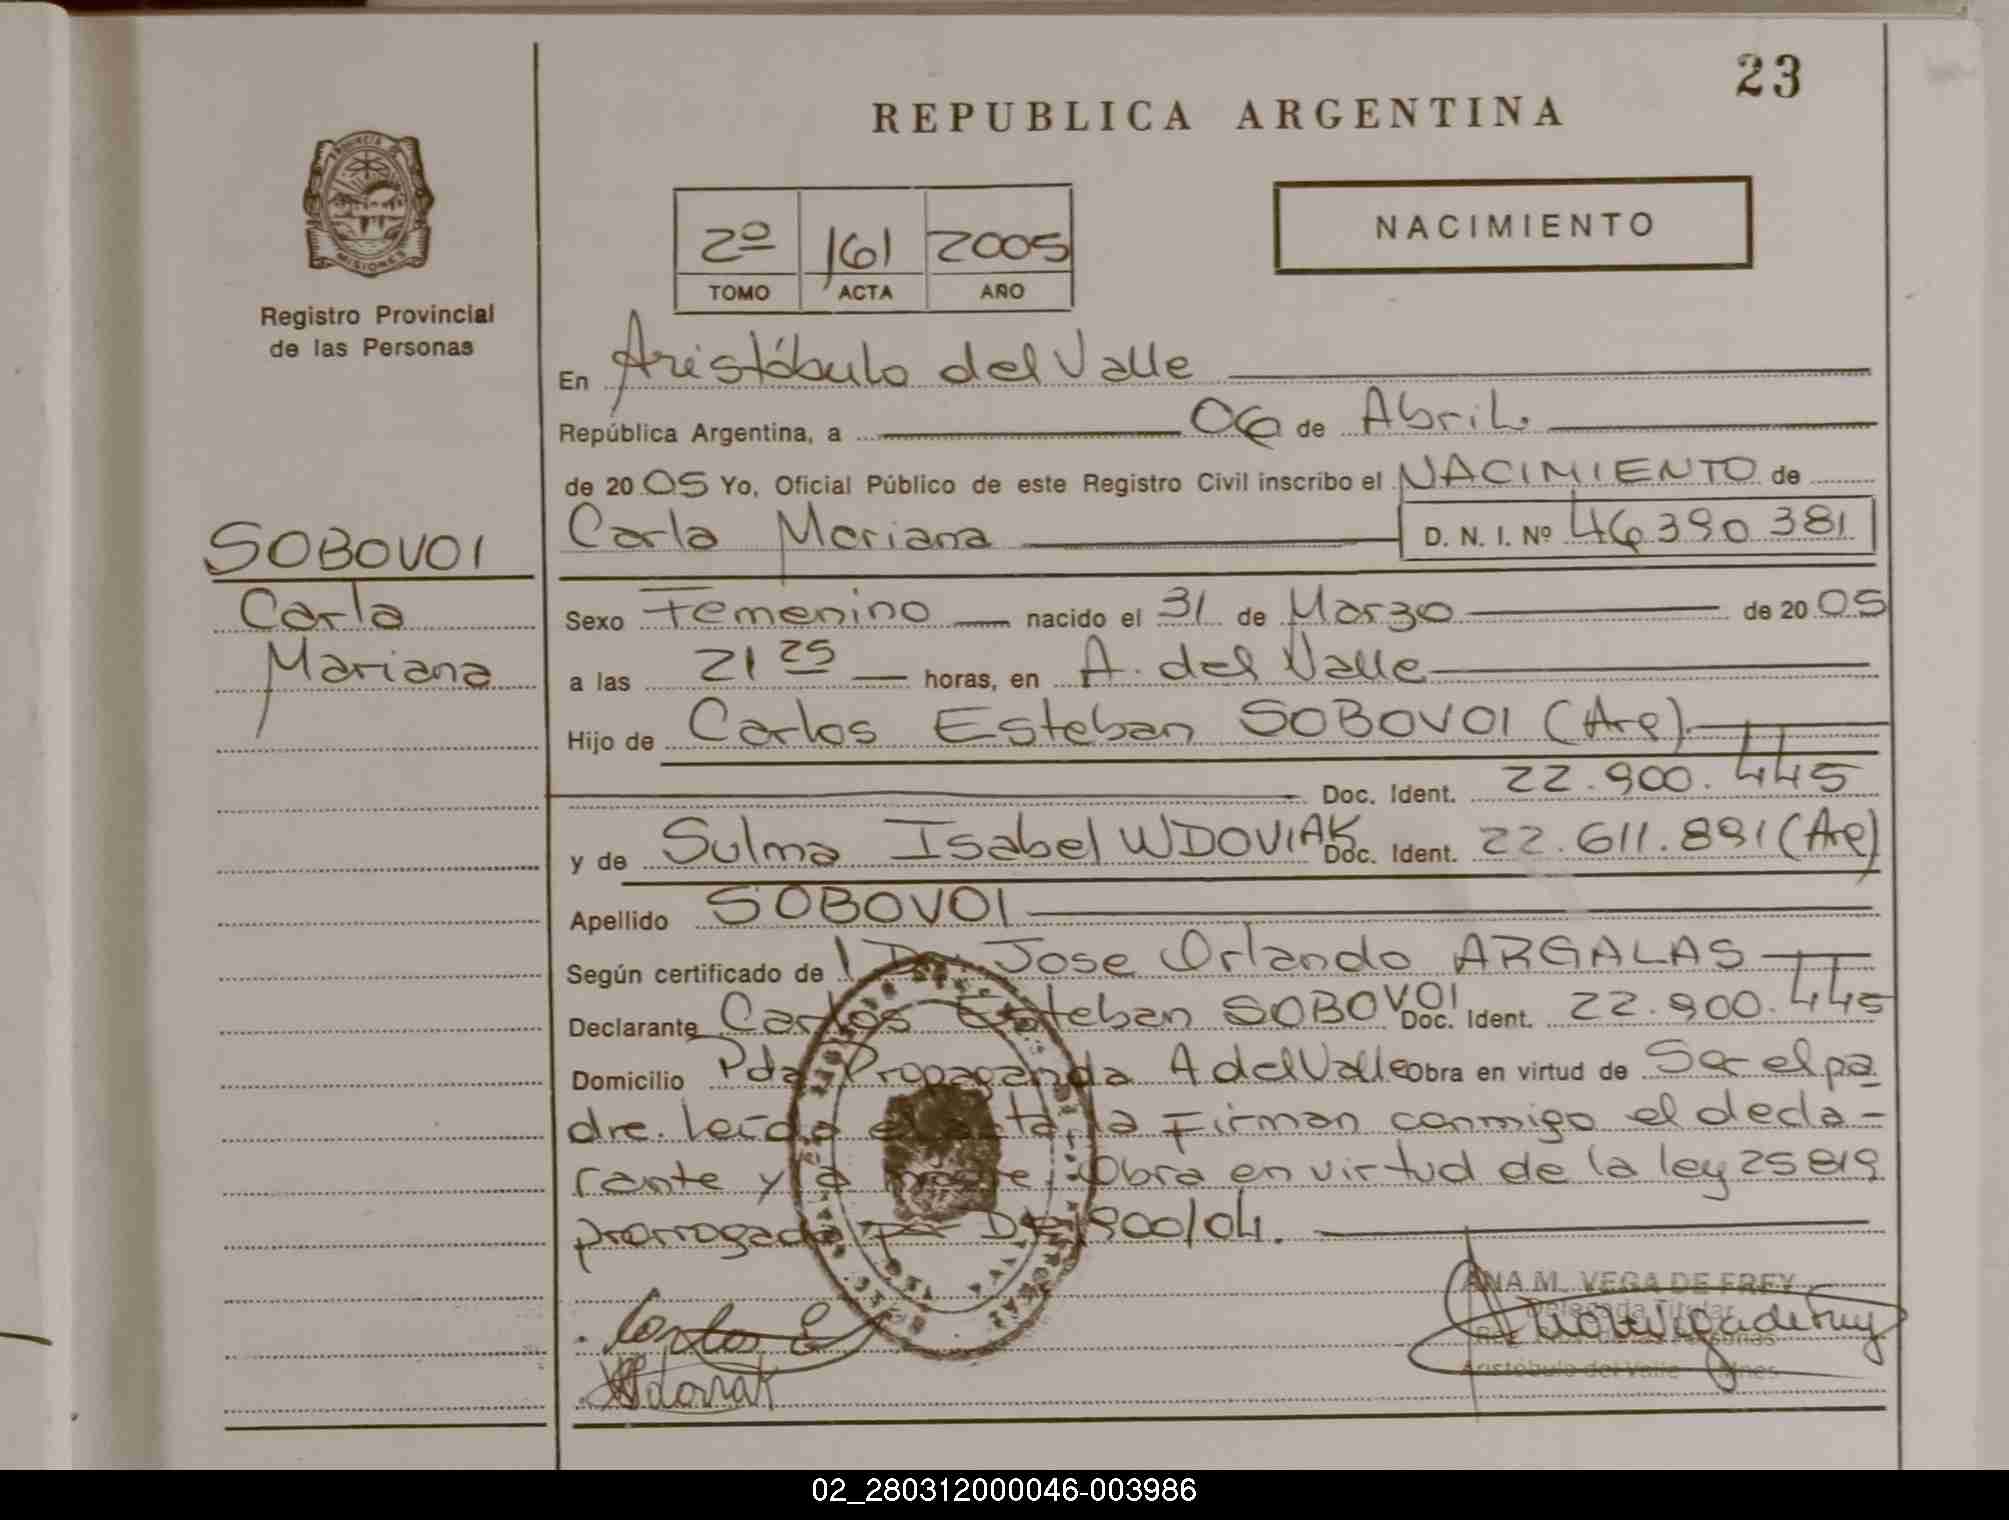 23
REPUBLICA ARGENTINA
PROVINCIA DE
MISIONES
Registro Provincial
de las Personas
NACIMIENTO
2º 161 2005
TOMO ACTA AÑO
En Aristóbulo del Valle
República Argentina, a 06 de Abril
de 2005 Yo, Oficial Público de este Registro Civil inscribo el NACIMIENTO de
Carla Mariana D. N. I. Nº 46.390.381
SOBOVOI
Carla
Mariana
Sexo Femenino nacido el 31 de Marzo de 2005
a las 21 25 horas, en A. del Valle
Hijo de Carlos Esteban SOBOVOI (Arg)
Doc. Ident. 22.900.445
y de Sulma Isabel WDOVIAK Doc. Ident. 22.611.891 (Arg)
Apellido SOBOVOI
Según certificado de Dr. Jose Orlando ARGALAS
Declarante Carlos Esteban SOBOVOI Doc. Ident. 22.900.445
Domicilio Pda Propaganda A del Valle Obra en virtud de Ser el pa
dre. Leída el acta, la Firman conmigo el decla-
rante y la madre. Obra en virtud de la ley 25819
prorrogada por Dto 1900/04.
ANA M. VEGA DE FREY
Delegada Titular
Aristóbulo del Valle Mnes
Carlos E
Wdoviak
02_280312000046-003986